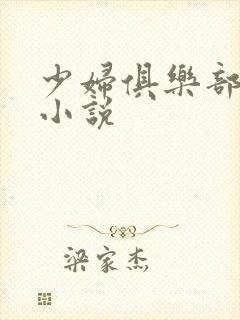 少婦俱樂部
小說
梁家杰